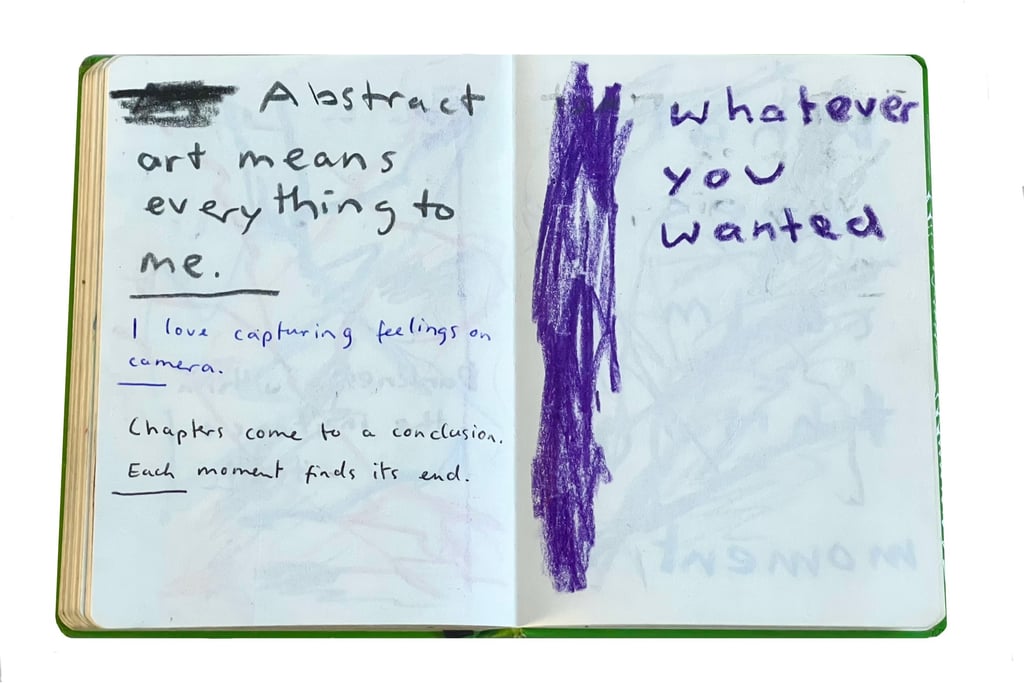 Abstract
art means
everything to
me.
I love capturing feelings on
camera.
Chapters come to a conclusion.
Each moment finds its end.
whatever
you
wanted
moment